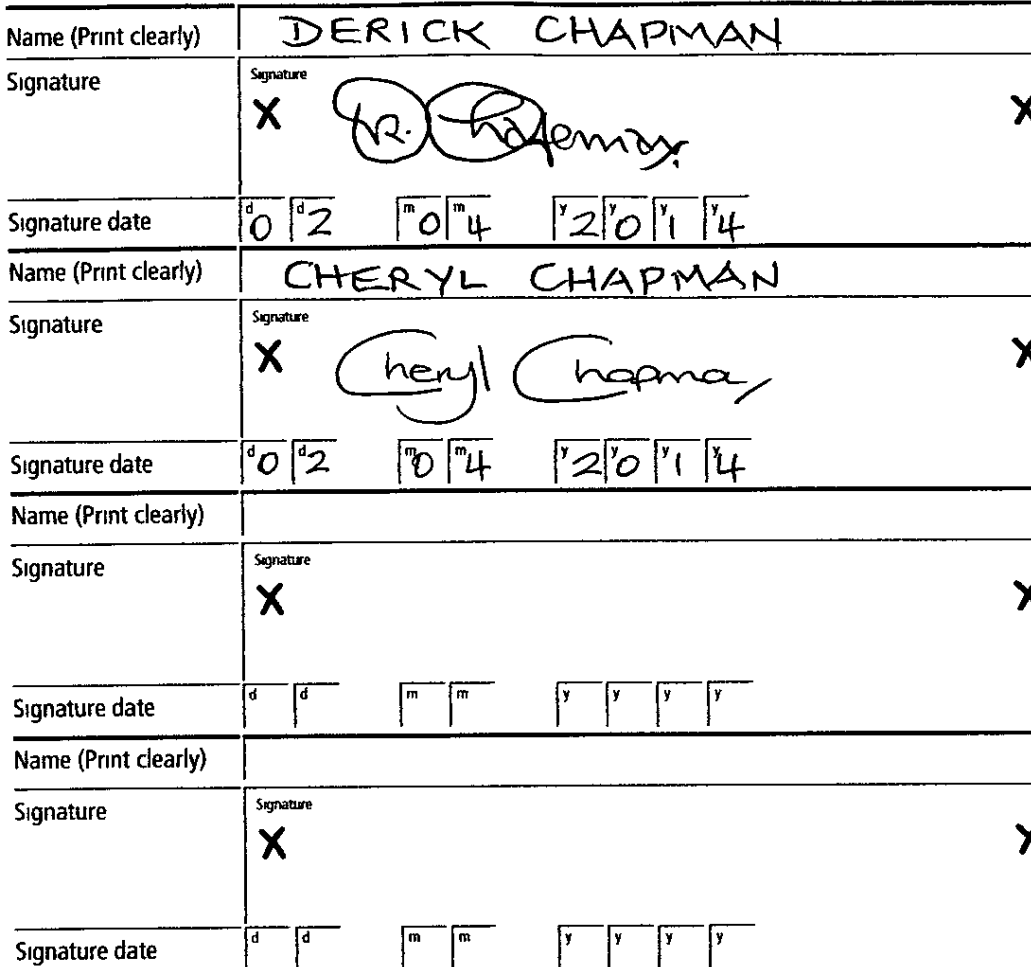 Name (Print clearly) DERICK CHAPMAN
Signature Signature
X X
Signature date d0 d2 m0 m4 y2 y0 y1 y4
Name (Print clearly) CHERYL CHAPMAN
Signature Signature
X Cheryl Chapma X
Signature date d0 d2 m0 m4 y2 y0 y1 y4
Name (Print clearly)
Signature Signature
X X
Signature date d d m m y y y y
Name (Print clearly)
Signature Signature
X X
Signature date d d m m y y y y